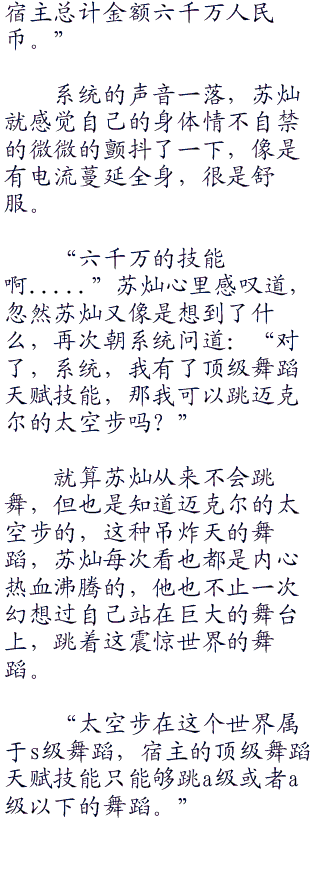 宿主总计金额六千万人民
币。”
系统的声音一落，苏灿
就感觉自己的身体情不自禁
的微微的颤抖了一下，像是
有电流蔓延全身，很是舒
服。
“六千万的技能
啊.....”苏灿心里感叹道，
忽然苏灿又像是想到了什
么，再次朝系统问道：“对
了，系统，我有了顶级舞蹈
天赋技能，那我可以跳迈克
尔的太空步吗？”
就算苏灿从来不会跳
舞，但也是知道迈克尔的太
空步的，这种吊炸天的舞
蹈，苏灿每次看也都是内心
热血沸腾的，他也不止一次
幻想过自己站在巨大的舞台
上，跳着这震惊世界的舞
蹈。
“太空步在这个世界属
于s级舞蹈，宿主的顶级舞蹈
天赋技能只能够跳a级或者a
级以下的舞蹈。”